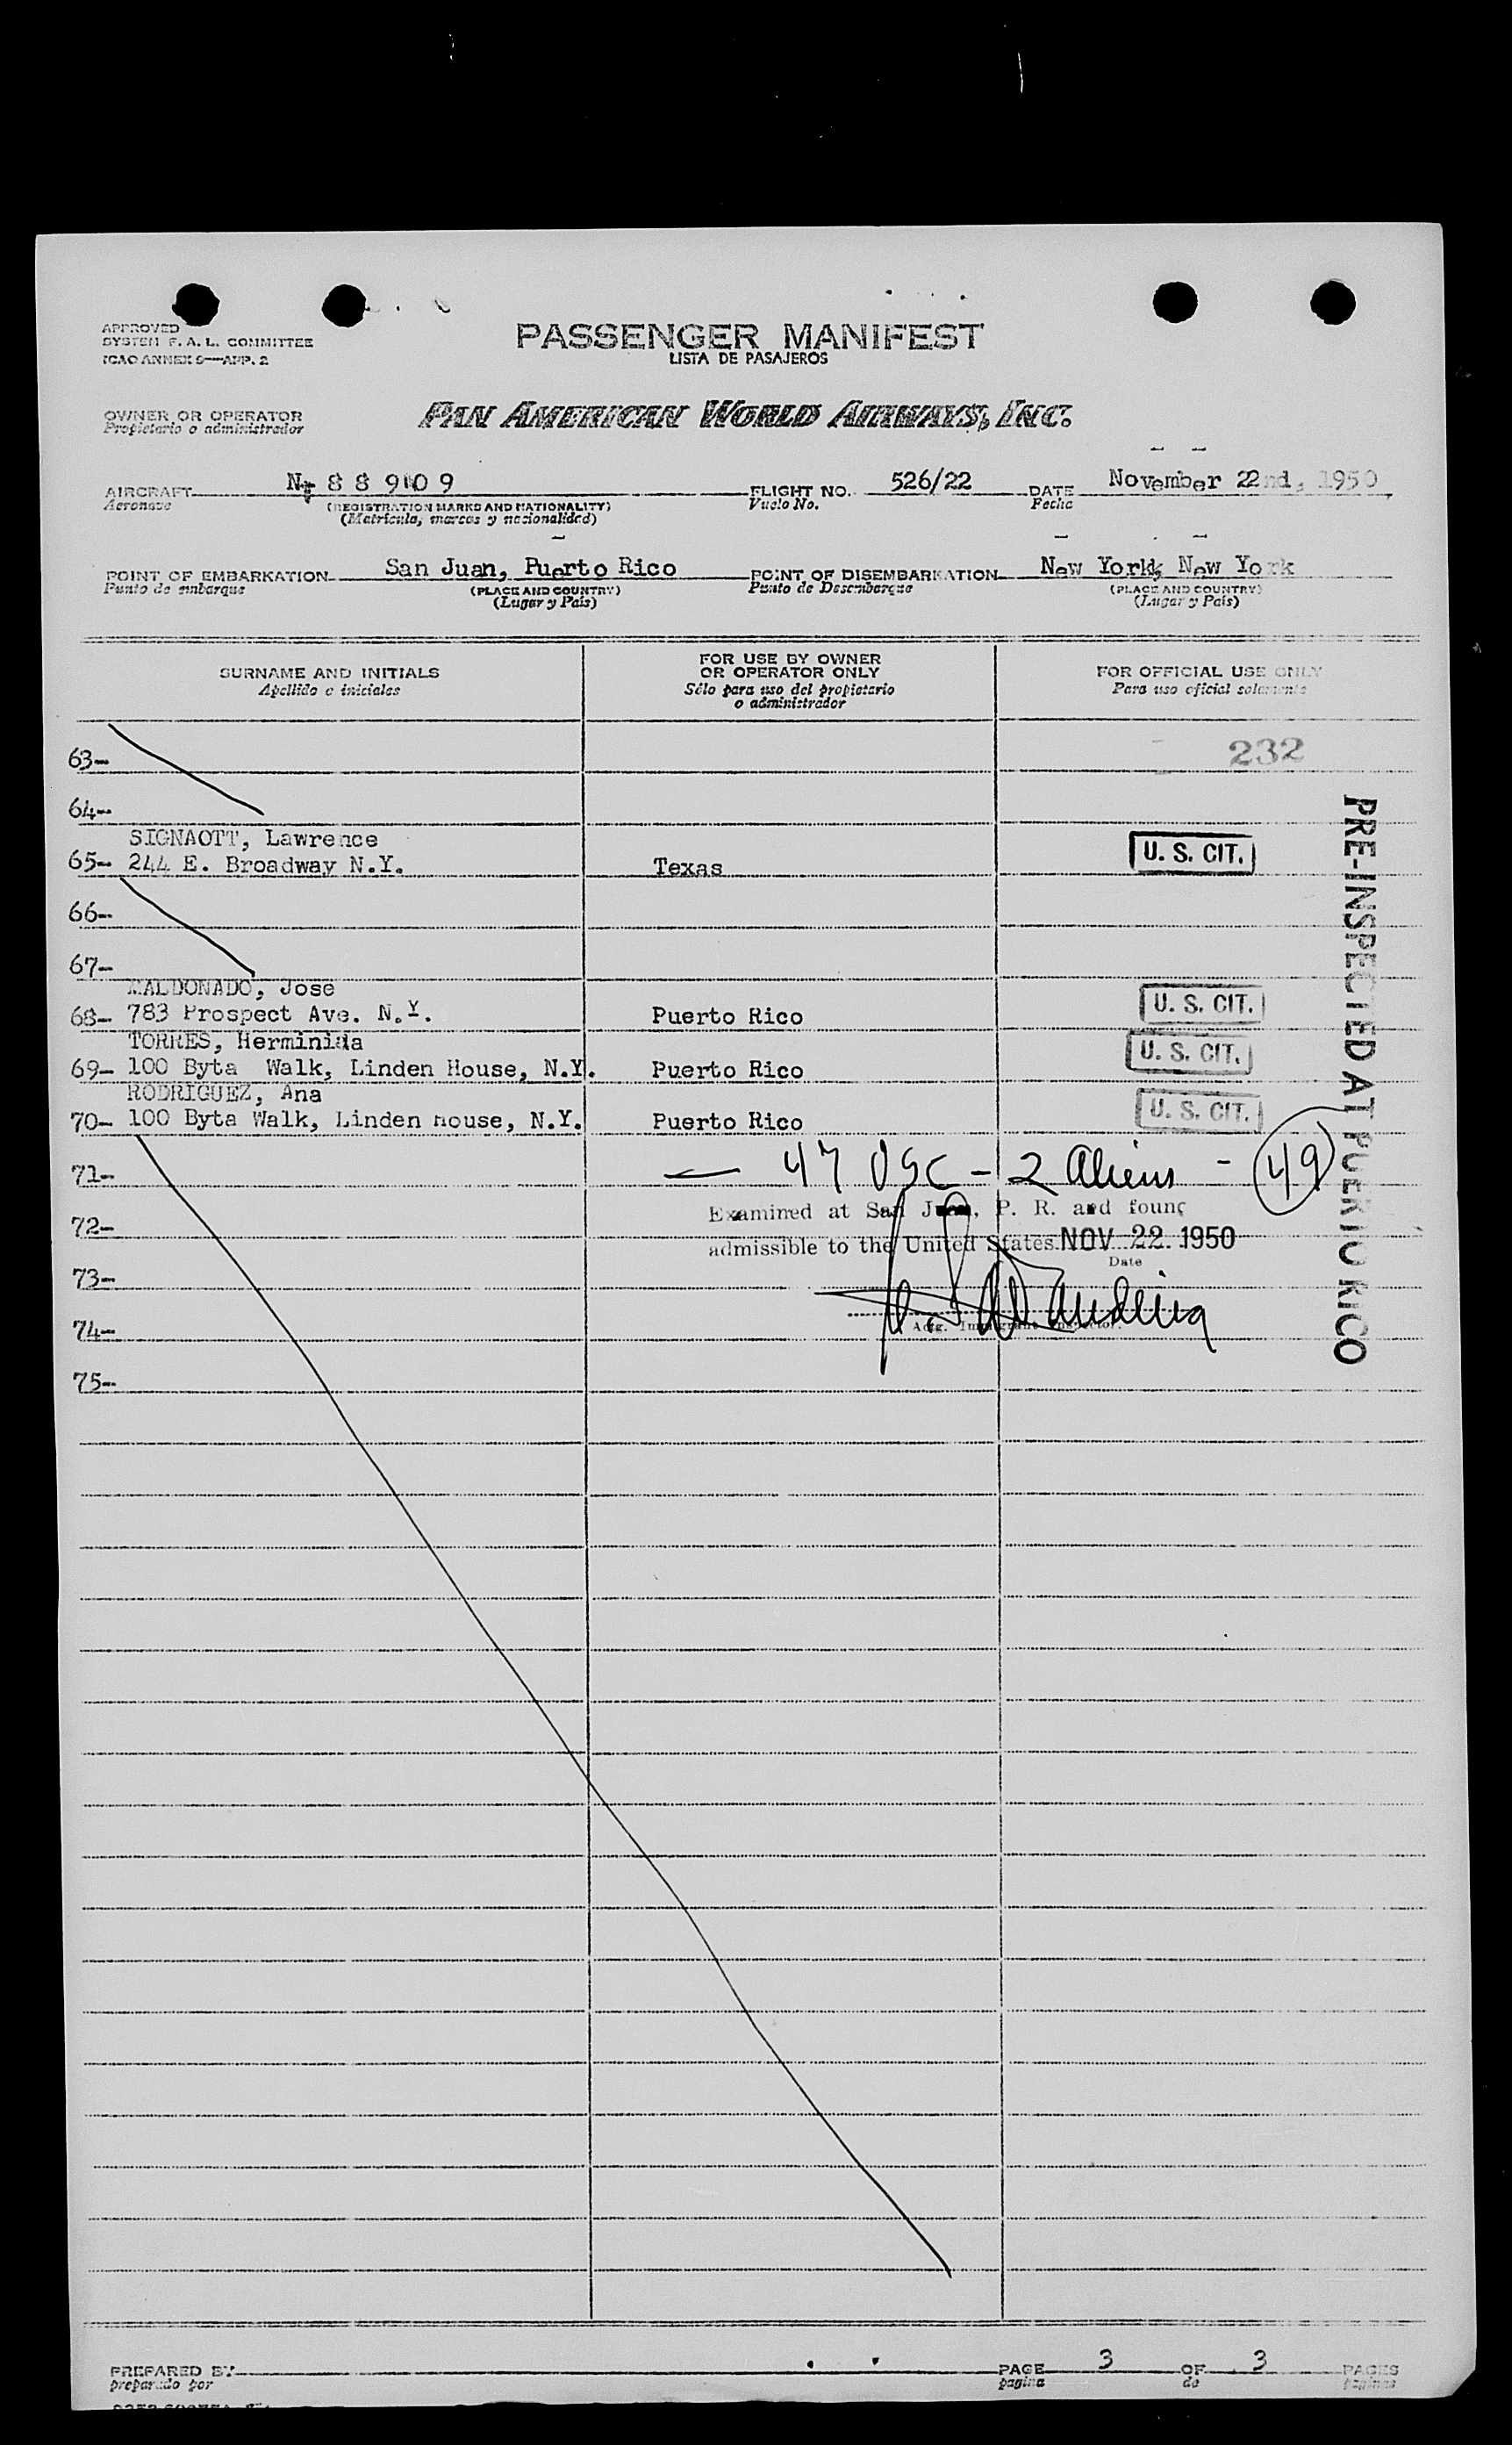 APPROVED
SYSTEM F. A. L. COMMITTEE
ICAO ANNEX 9—APP. 2
PASSENGER MANIFEST
LISTA DE PASAJEROS
OWNER OR OPERATOR
Propietario o administrador
PAN AMERICAN WORLD AIRWAYS, INC.
AIRCRAFT N- 8 8 9 0 9 FLIGHT NO. 526/22 DATE November 22nd, 1950
Aeronave (REGISTRATION MARKS AND NATIONALITY) Vuelo No. Fecha
(Matrícula, marcas y nacionalidad)
POINT OF EMBARKATION San Juan, Puerto Rico POINT OF DISEMBARKATION New York, New York
Punto de embarque (PLACE AND COUNTRY) Punto de Desembarque (PLACE AND COUNTRY)
(Lugar y País) (Lugar y País)
SURNAME AND INITIALS
Apellido e iniciales
FOR USE BY OWNER
OR OPERATOR ONLY
Sólo para uso del propietario
o administrador
FOR OFFICIAL USE ONLY
Para uso oficial solamente
63- 232
64-
SIGNAOTT, Lawrence
65- 244 E. Broadway N.Y. Texas U. S. CIT.
66-
67-
MALDONADO, Jose
68- 783 Prospect Ave. N.Y. Puerto Rico U. S. CIT.
TORRES, Herminida
69- 100 Byta Walk, Linden House, N.Y. Puerto Rico U. S. CIT.
RODRIGUEZ, Ana
70- 100 Byta Walk, Linden House, N.Y. Puerto Rico U. S. CIT.
71- 47 USC - 2 Aliens - 49
Examined at San Juan, P. R. and found
72-
admissible to the United States NOV 22 1950
Date
73-
74-
Actg. Immigrant Inspector.
75-
PRE-INSPECTED AT PUERTO RICO
PREPARED BY PAGE 3 OF 3 PAGES
preparado por pagina de páginas